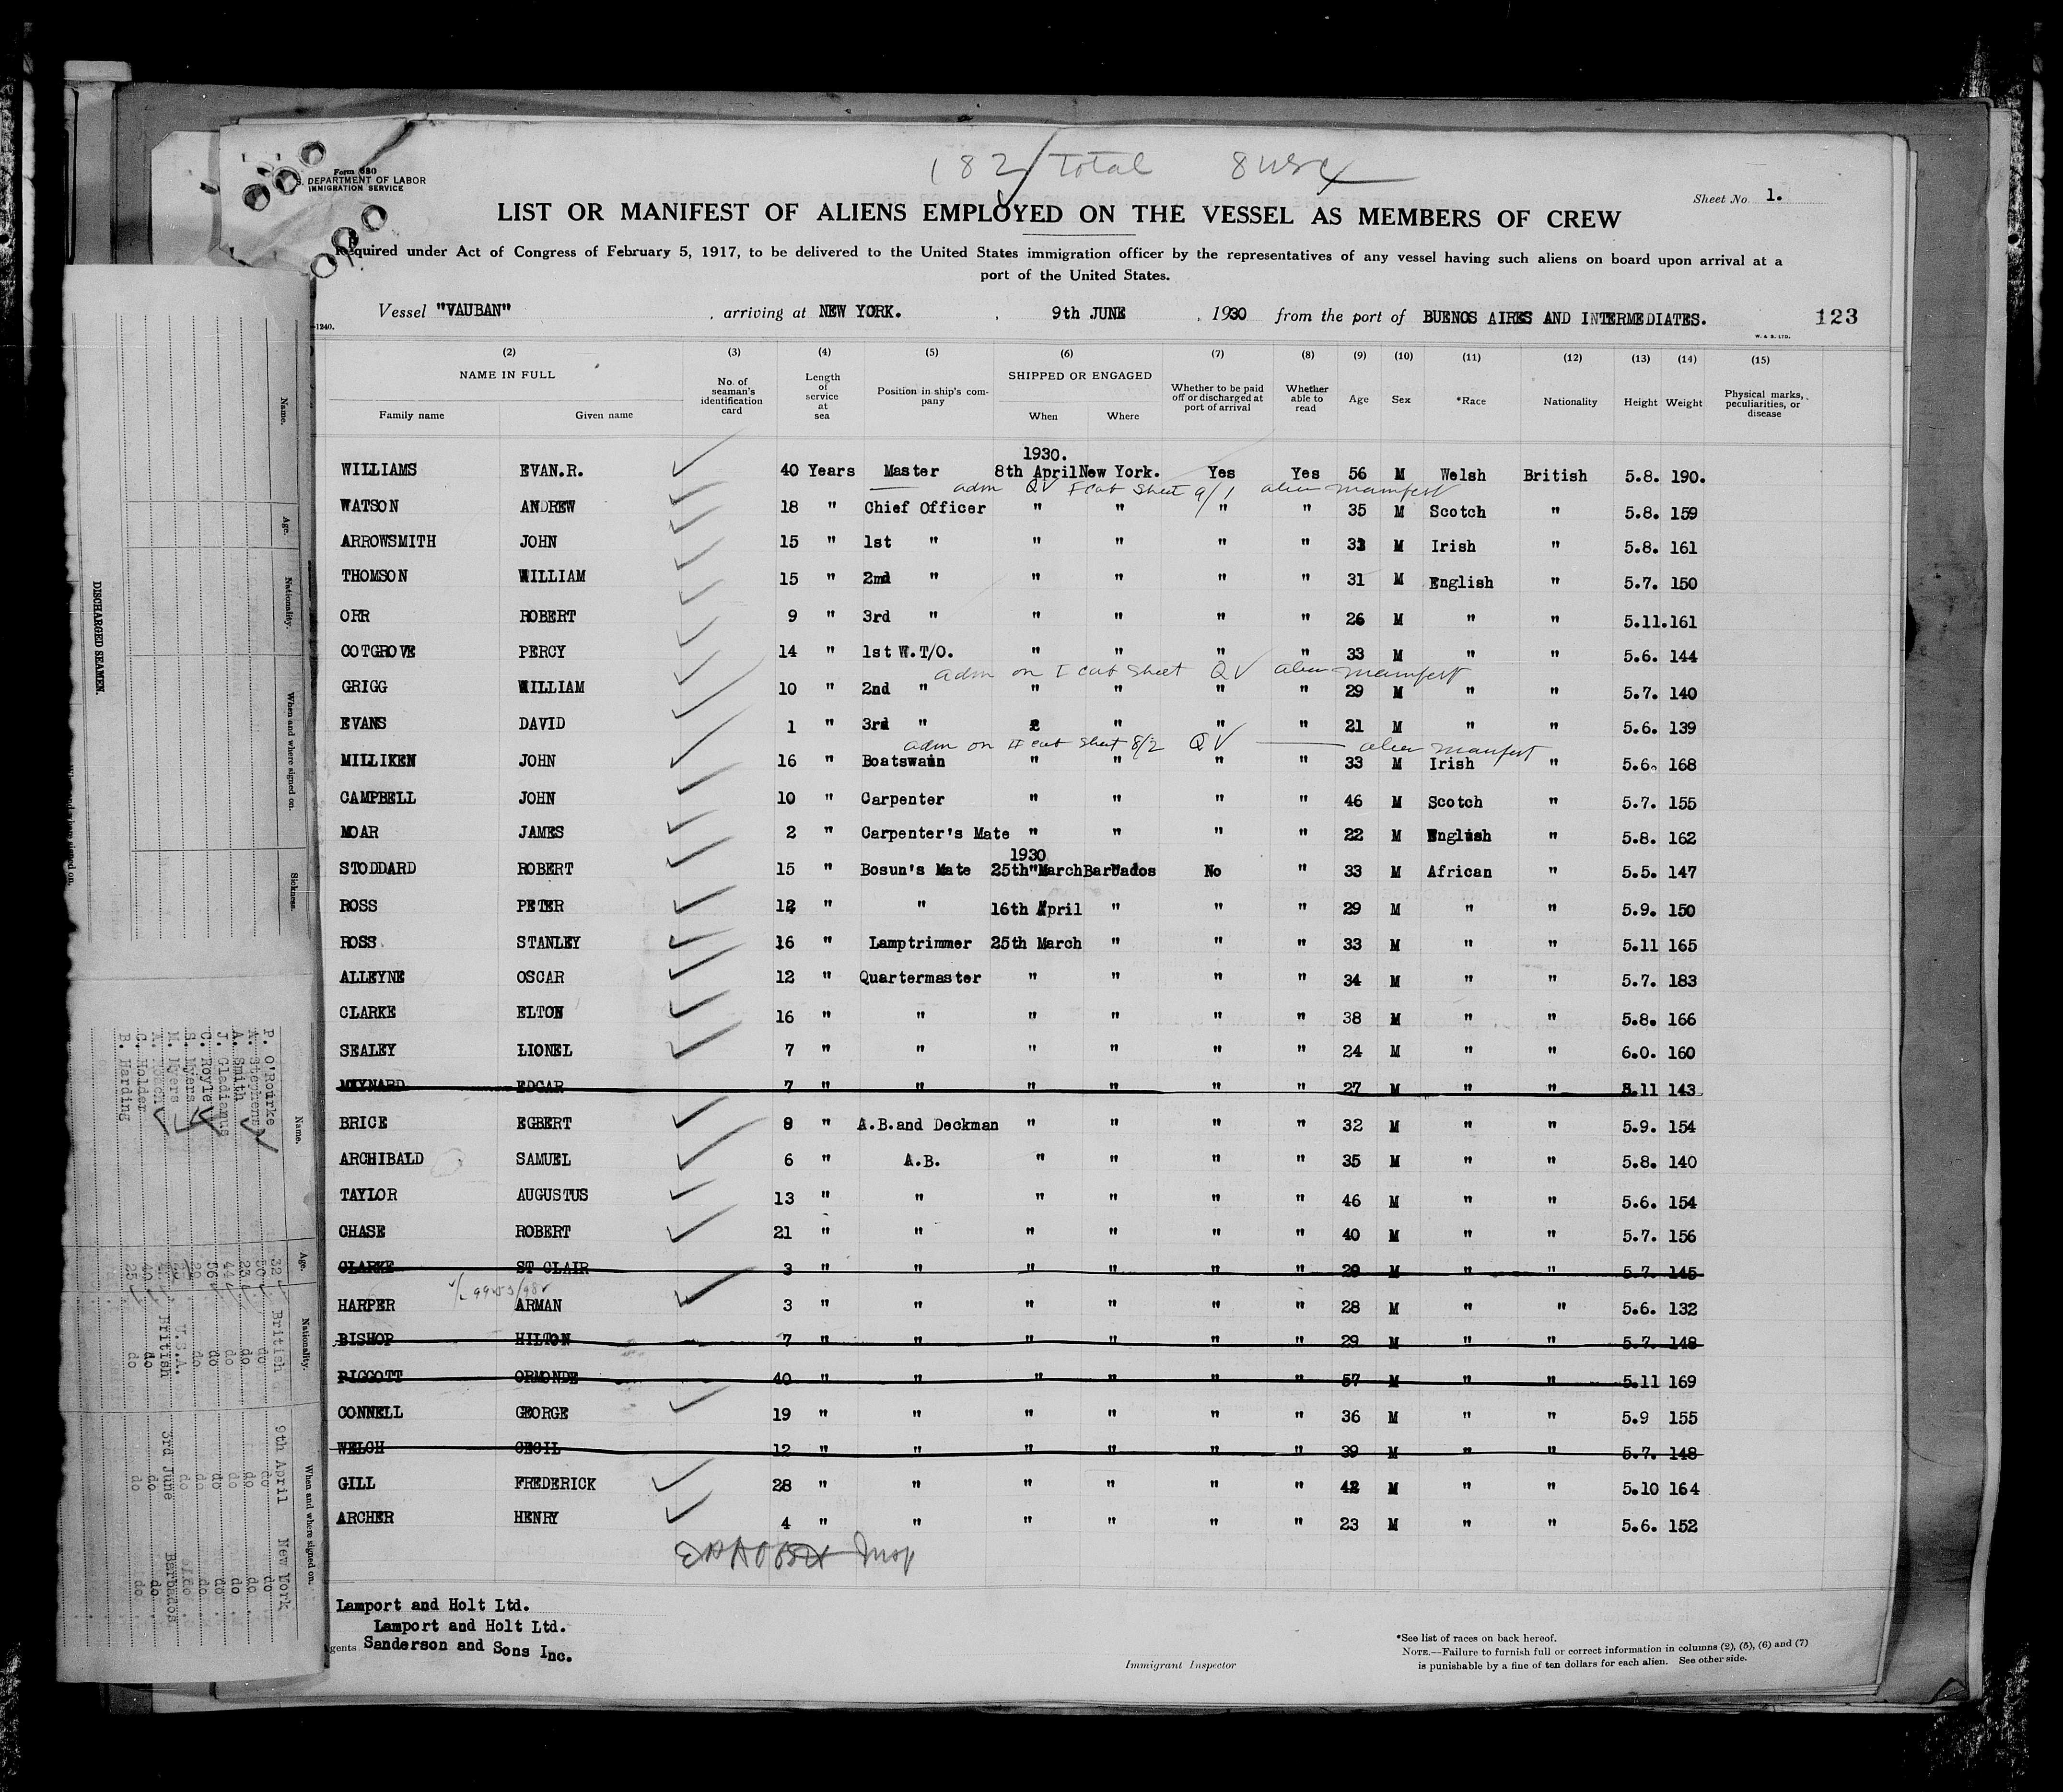 182 Total 8 USC
Form 680
S. DEPARTMENT OF LABOR
IMMIGRATION SERVICE
Sheet No. 1.
LIST OR MANIFEST OF ALIENS EMPLOYED ON THE VESSEL AS MEMBERS OF CREW
Required under Act of Congress of February 5, 1917, to be delivered to the United States immigration officer by the representatives of any vessel having such aliens on board upon arrival at a
port of the United States.
Vessel "VAUBAN", arriving at NEW YORK., 9th JUNE, 1930 from the port of BUENOS AIRES AND INTERMEDIATES. 123
-1240.
W. & S. LTD.
(2) (3) (4) (5) (6) (7) (8) (9) (10) (11) (12) (13) (14) (15)
NAME IN FULL No. of seaman's identification card Length of service at sea Position in ship's company SHIPPED OR ENGAGED Whether to be paid off or discharged at port of arrival Whether able to read Age Sex *Race Nationality Height Weight Physical marks, peculiarities, or disease
Family name Given name When Where
1930.
WILLIAMS EVAN.R. 40 Years Master 8th April New York. Yes Yes 56 M Welsh British 5.8. 190.
adm QV I cat Sheet 9/1 alien manifest
WATSON ANDREW 18 " Chief Officer " " " " 35 M Scotch " 5.8. 159
ARROWSMITH JOHN 15 " 1st " " " " " 33 M Irish " 5.8. 161
THOMSON WILLIAM 15 " 2nd " " " " " 31 M English " 5.7. 150
ORR ROBERT 9 " 3rd " " " " " 26 M " " 5.11. 161
COTGROVE PERCY 14 " 1st W.T/O. " " " " 33 M " " 5.6. 144
adm on I cat Sheet QV alien manifest
GRIGG WILLIAM 10 " 2nd " " " " " 29 M " " 5.7. 140
EVANS DAVID 1 " 3rd " " " " " 21 M " " 5.6. 139
adm on II cat Sheet 8/2 QV alien manifest
MILLIKEN JOHN 16 " Boatswain " " " " 33 M Irish " 5.6. 168
CAMPBELL JOHN 10 " Carpenter " " " " 46 M Scotch " 5.7. 155
MOAR JAMES 2 " Carpenter's Mate " " " " 22 M English " 5.8. 162
1930
STODDARD ROBERT 15 " Bosun's Mate 25th March Barbados No " 33 M African " 5.5. 147
ROSS PETER 12 " " 16th April " " " 29 M " " 5.9. 150
ROSS STANLEY 16 " Lamptrimmer 25th March " " " 33 M " " 5.11 165
ALLEYNE OSCAR 12 " Quartermaster " " " " 34 M " " 5.7. 183
CLARKE ELTON 16 " " " " " " 38 M " " 5.8. 166
SEALEY LIONEL 7 " " " " " " 24 M " " 6.0. 160
MAYNARD EDGAR 7 " " " " " " 27 M " " 5.11 143
BRICE EGBERT 8 " A.B.and Deckman " " " " 32 M " " 5.9. 154
ARCHIBALD SAMUEL 6 " A.B. " " " " 35 M " " 5.8. 140
TAYLOR AUGUSTUS 13 " " " " " " 46 M " " 5.6. 154
CHASE ROBERT 21 " " " " " " 40 M " " 5.7. 156
CLARKE ST CLAIR 3 " " " " " " 29 M " " 5.7. 145
HARPER ARMAN 3 " " " " " " 28 M " " 5.6. 132
BISHOP HILTON 7 " " " " " " 29 M " " 5.7. 148
PIGGOTT ORMONDE 40 " " " " " " 57 M " " 5.11 169
CONNELL GEORGE 19 " " " " " " 36 M " " 5.9 155
WELCH CECIL 12 " " " " " " 39 M " " 5.7. 148
GILL FREDERICK 28 " " " " " " 42 M " " 5.10 164
ARCHER HENRY 4 " " " " " " 23 M " " 5.6. 152
Lamport and Holt Ltd.
Lamport and Holt Ltd.
gents Sanderson and Sons Inc.
Immigrant Inspector
*See list of races on back hereof.
NOTE.—Failure to furnish full or correct information in columns (2), (5), (6) and (7)
is punishable by a fine of ten dollars for each alien. See other side.
DISCHARGED SEAMEN.
Name. Age. Nationality. When and where signed on. Sickness.
Name. Age. Nationality. When and where signed on.
P. O'Rourke 32 British 9th April New York
A. Stephens 50 do do do
A. Smith 23 do do do
J. Gledians 44 do do do
C. Royle 56 do do do
S. Myers do do
M. Myers U.S.A. do do
British 3rd June Barbados
C. Holder 40 do do do
B. Harding 25 do do do